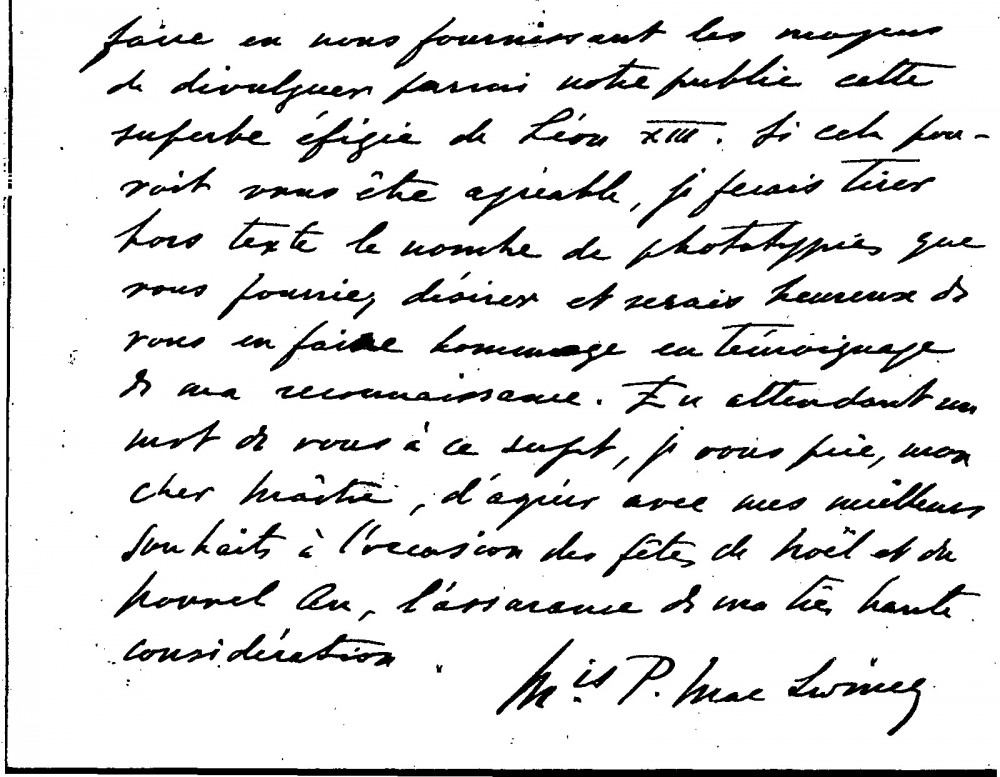 faire en nous fournissant les moyens
de divulguer parmi notre public cette
superbe éfigie de Léon XIII. Si cela pou-
vait vous être agréable, je ferais tirer
hors texte le nombre de phototypies que
vous pourriez désirer et serais heureux de
vous en faire hommage en témoignage
de ma reconnaissance. En attendant un
mot de vous à ce sujet, je vous prie, mon
cher Maître, d'agréer avec mes meilleurs
souhaits à l'occasion des fêtes de Noël et du
Nouvel An, l'assurance de ma très haute
considération.
Mis P. Mac Swiney